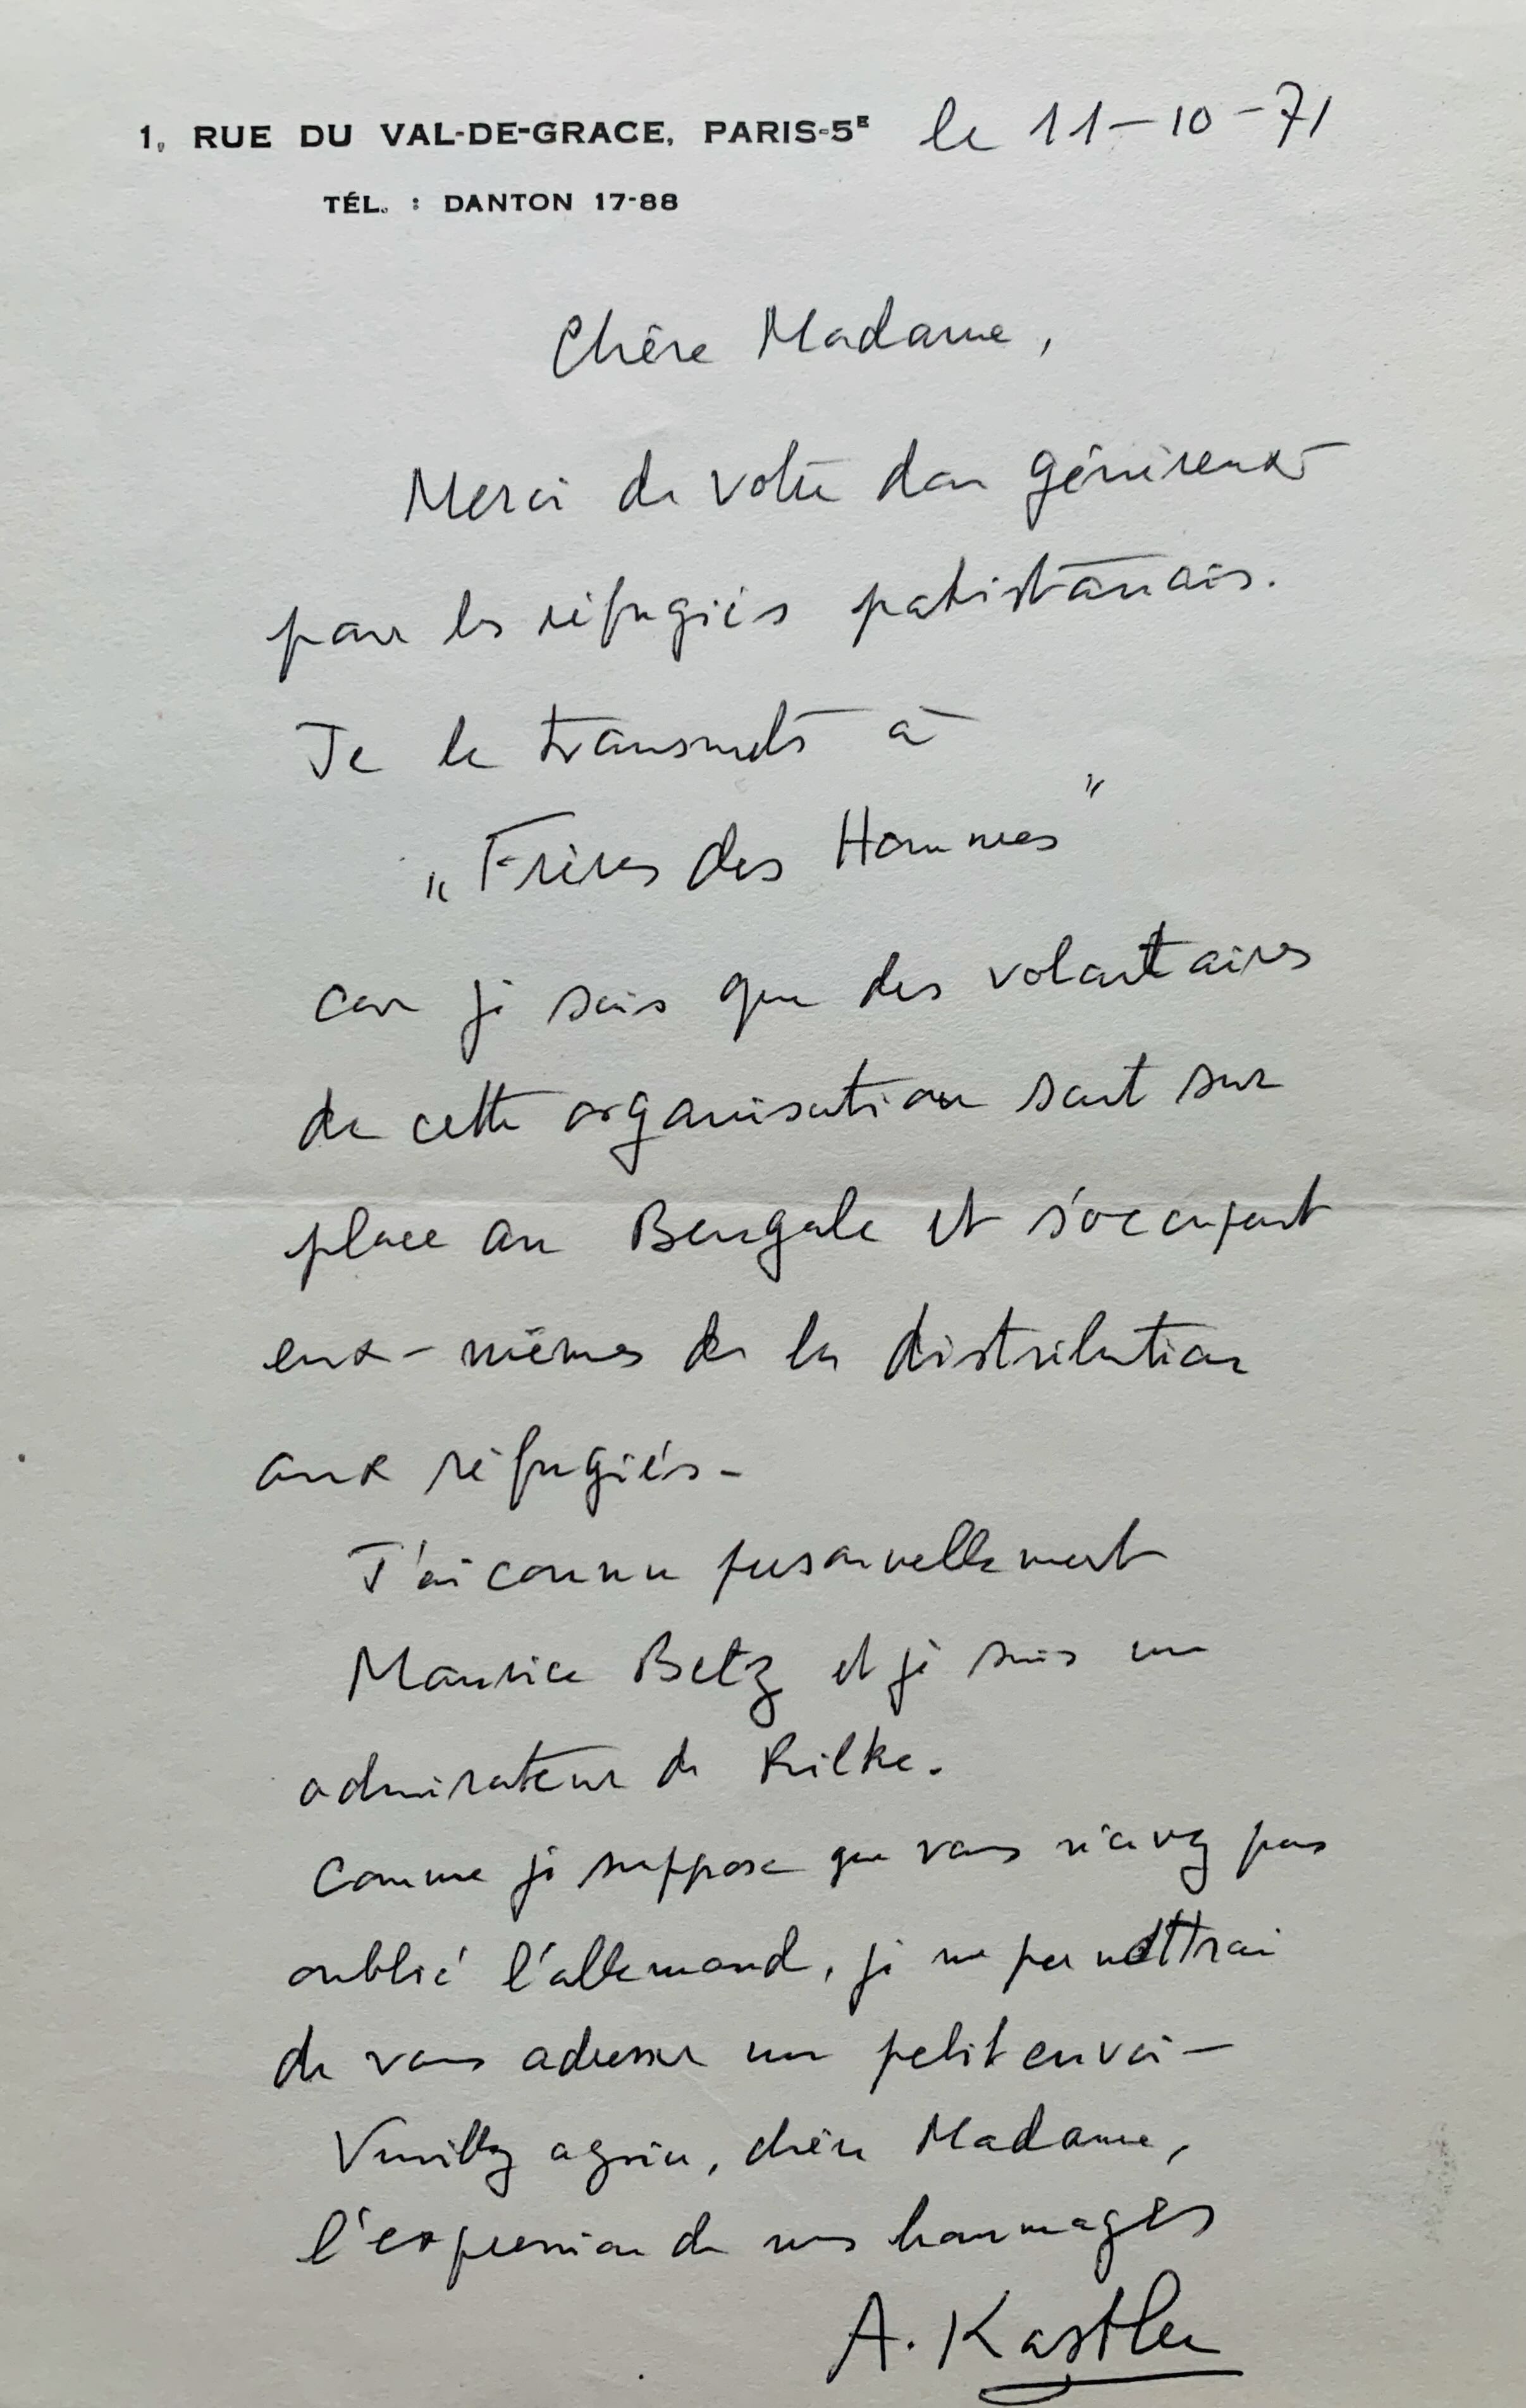 1, RUE DU VAL-DE-GRACE, PARIS-5E le 11-10-71
TÉL. : DANTON 17-88
Chère Madame,
Merci de votre don généreux
pour les réfugiés pakistanais.
Je le transmets à
„Frères des Hommes"
car je sais que des volontaires
de cette organisation sont sur
place au Bengale et s'occupent
eux-mêmes de la distribution
aux réfugiés-
J'ai connu personnellement
Maurice Betz et je suis un
admirateur de Rilke.
Comme je suppose que vous n'avez pas
oublié l'allemand, je me permettrai
de vous adresser un petit envoi-
Veuillez agréer, chère Madame,
l'expression de mes hommages
A. Kastler